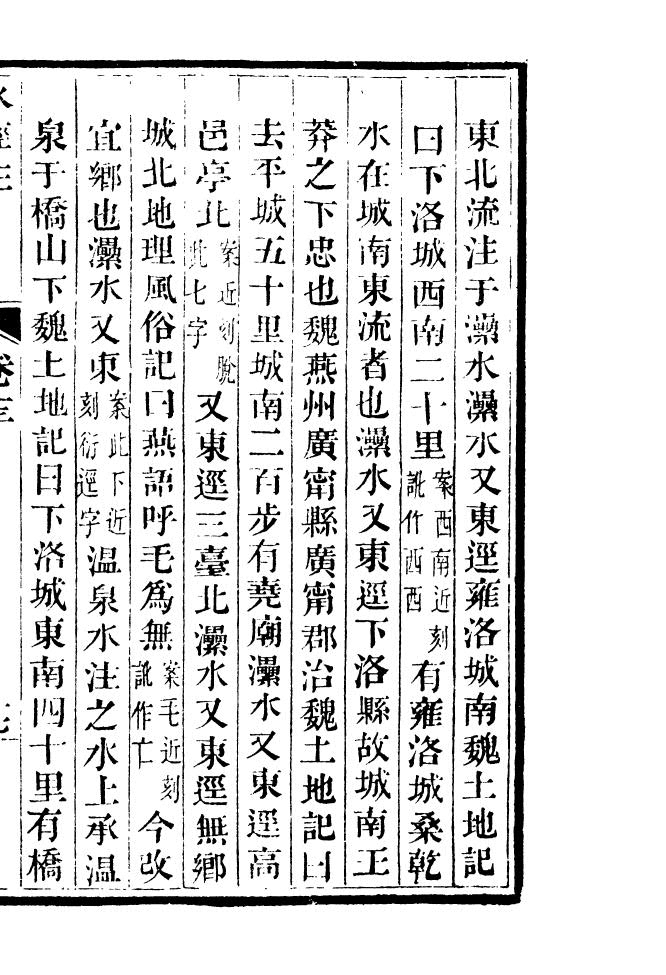 東北流注于㶟水㶟水又東逕雍洛城南魏土地記
曰下洛城西南二十里案西南近刻訛作西西有雍洛城桑乾
水在城南東流者也㶟水又東逕下洛縣故城南王
莽之下忠也魏燕州廣甯縣廣甯郡治魏土地記曰
去平城五十里城南二百步有堯廟㶟水又東逕高
邑亭北案近刻脫此七字又東逕三臺北㶟水又東逕無鄉
城北地理風俗記曰燕語呼毛爲無案毛近刻訛作亡今改
宜鄉也㶟水又東案此下近刻衍逕字温泉水注之水上承温
泉于橋山下魏土地記曰下洛城東南四十里有橋
水經注
卷十三